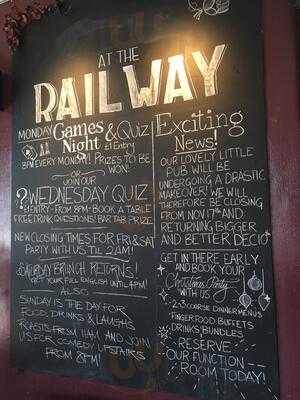 AT THE
RAILWAY
MONDAY Games & Quiz
Night £1 Entry
8PM EVERY MONDAY! PRIZES TO BE
WON!
OR
JOIN OUR
? WEDNESDAY QUIZ
£1 ENTRY - FROM 8PM - BOOK A TABLE
FREE DRINK QUESTIONS! BAR TAB PRIZE
NEW CLOSING TIMES FOR FRI & SAT
PARTY WITH US TIL 2AM!
SATURDAY BRUNCH RETURNS!
GET YOUR FULL ENGLISH UNTIL 4PM!
ALSO
SUNDAY IS THE DAY FOR
FOOD, DRINKS & LAUGHS
ROASTS FROM 11AM AND JOIN
US FOR COMEDY UPSTAIRS
FROM 8PM!
Exciting
News!
OUR LOVELY LITTLE
PUB WILL BE
UNDERGOING A DRASTIC
MAKEOVER! WE WILL
THEREFORE BE CLOSING
FROM NOV 17TH AND
RETURNING BIGGER
AND BETTER DEC 10
GET IN THERE EARLY
AND BOOK YOUR
Christmas Party
WITH US
- 2-3 COURSE DINNER MENUS
FINGER FOOD BUFFETS
DRINKS BUNDLES
RESERVE
OUR FUNCTION
ROOM TODAY!